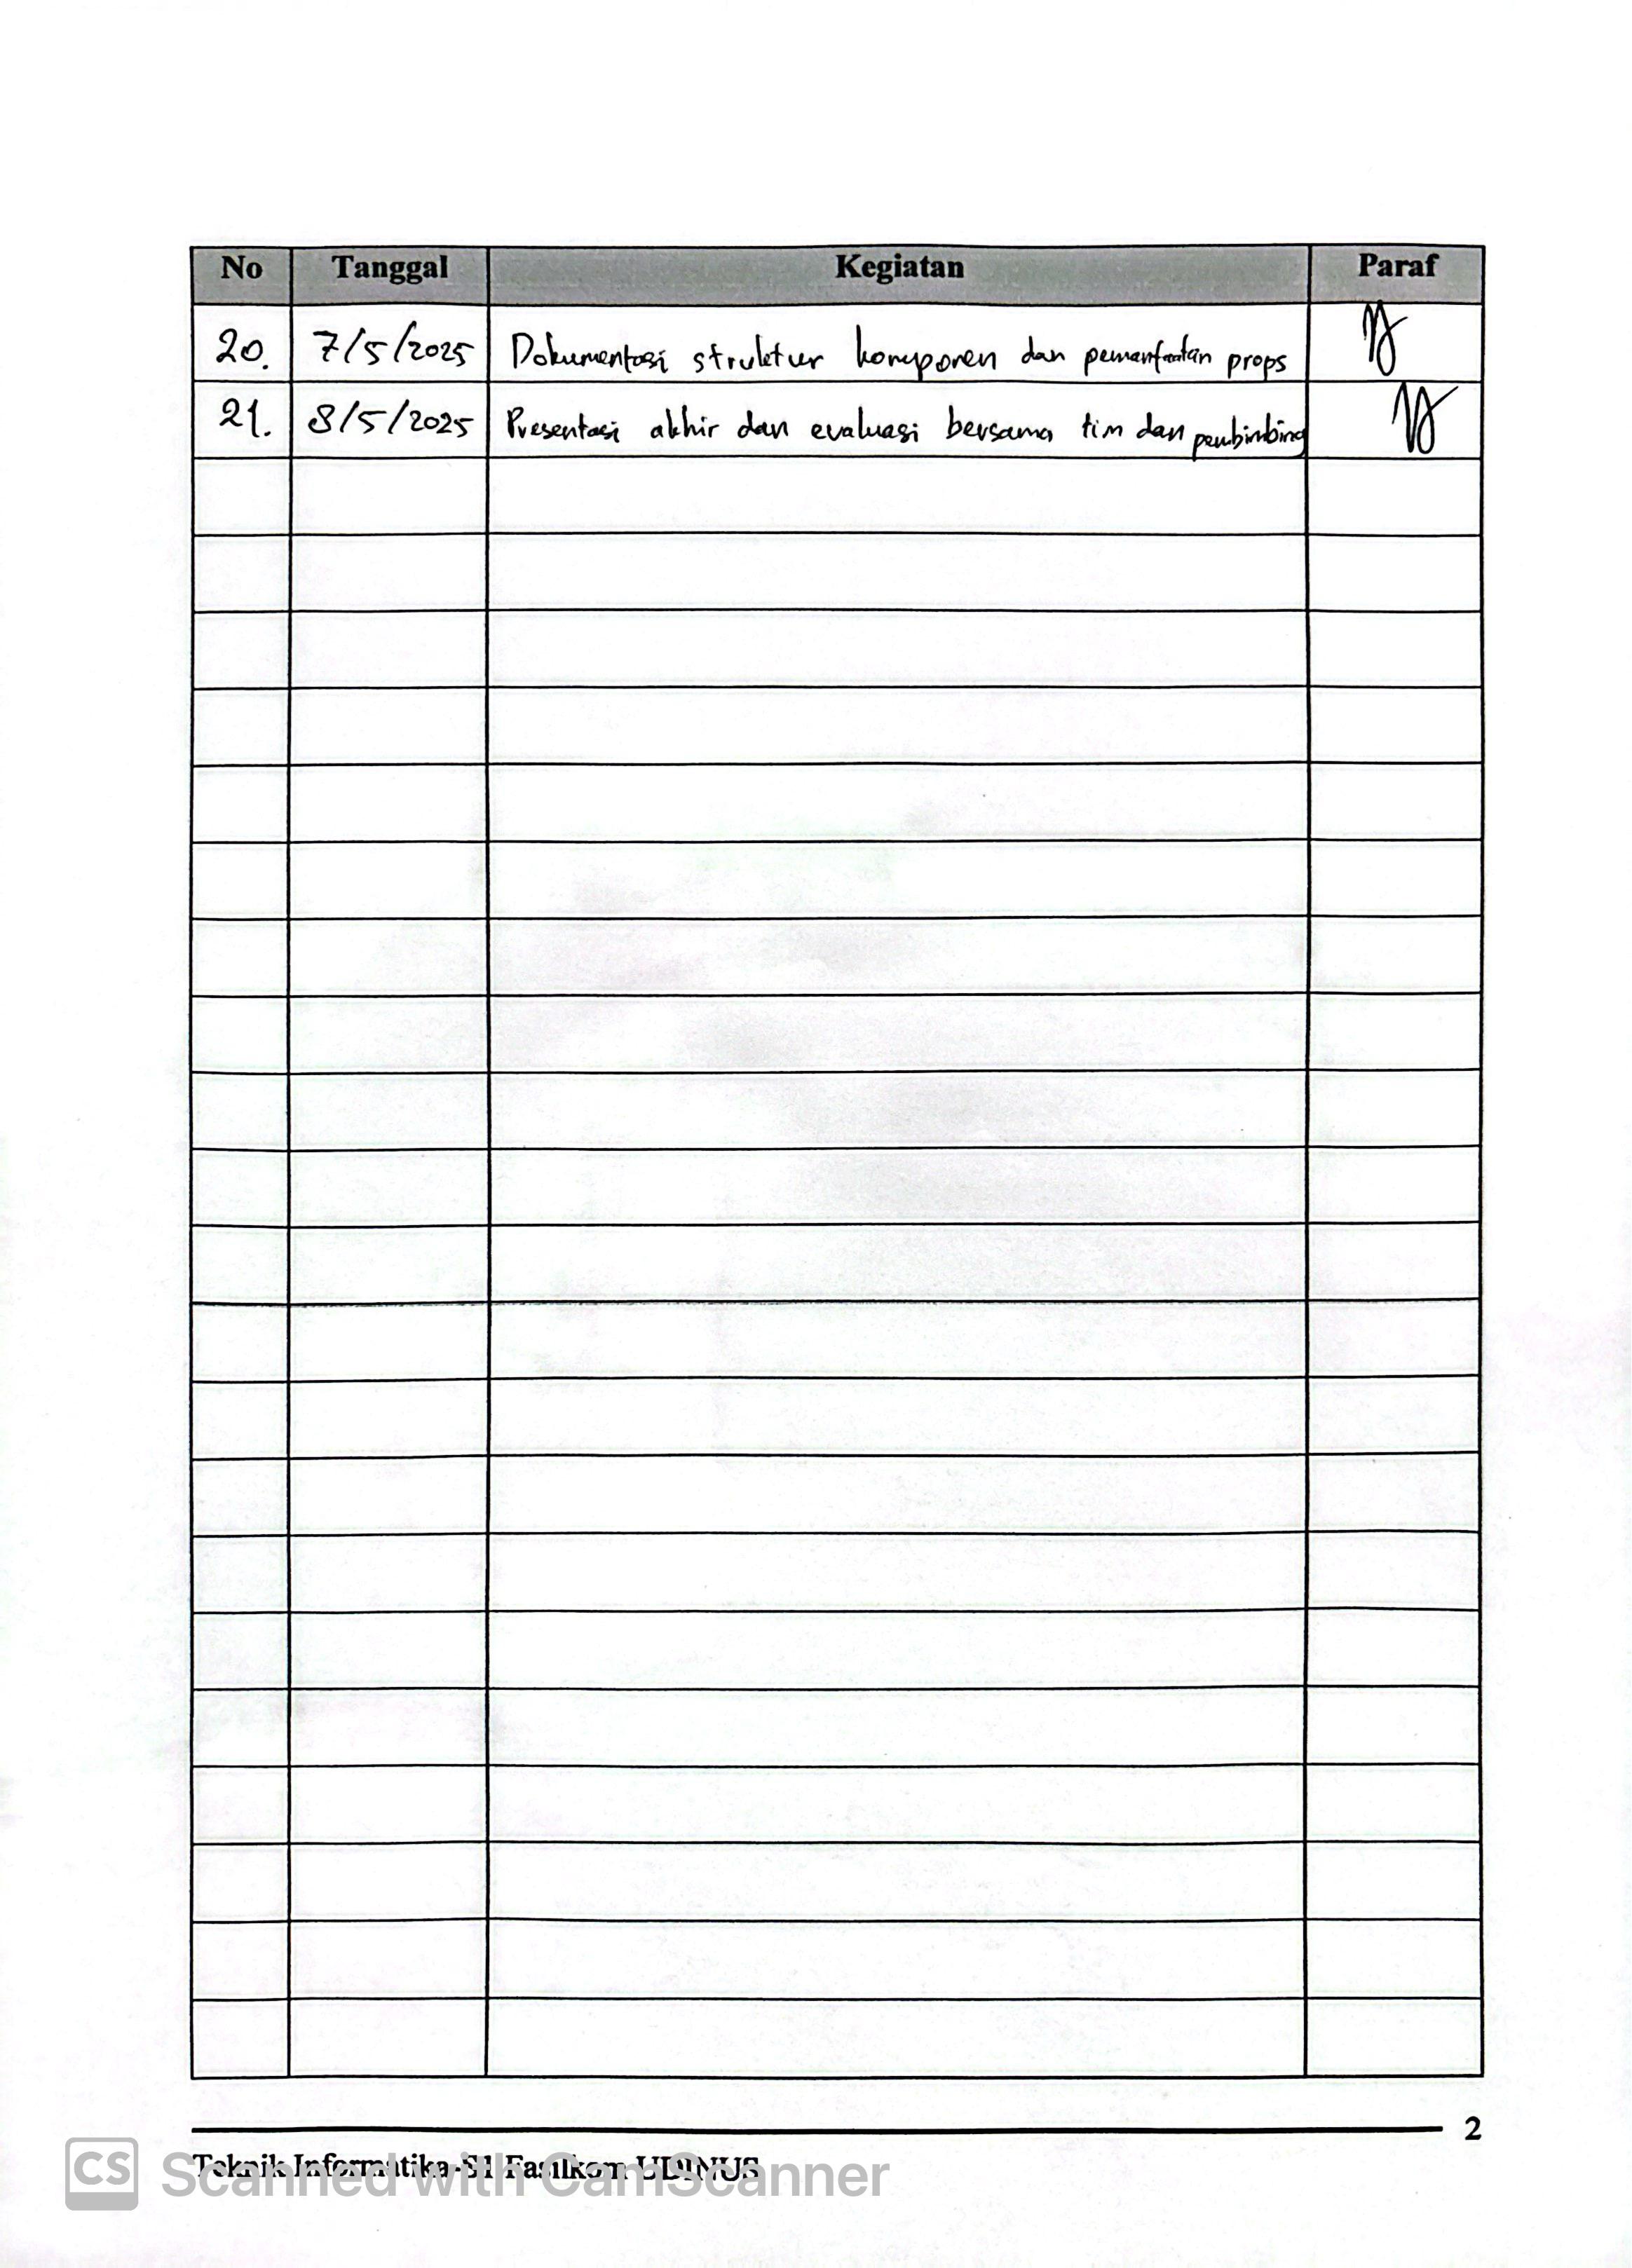 No Tanggal Kegiatan Paraf
20. 7/5/2025 Dokumentasi struktur komponen dan pemanfaatan props
21. 8/5/2025 Presentasi akhir dan evaluasi bersama tim dan pembimbing
2
Teknik Informatika-S1 Fasilkom UDINUS
CS Scanned with CamScanner